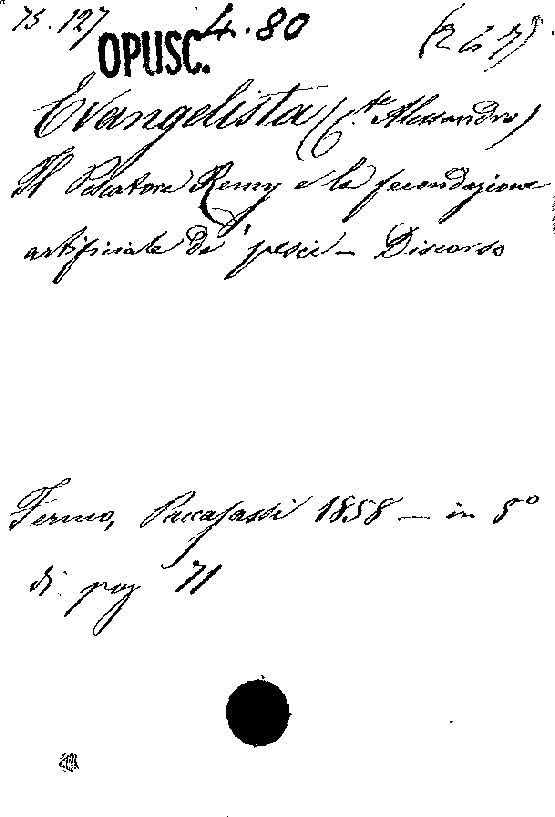 75.127 4.80 (267)
OPUSC.
Evangelista (C.te Alessandro)
Il Pescatore Remy e la fecondazione
artificiale de' pesci – Discorso
Fermo, Paccasassi 1858 – in 8º
di pag 71